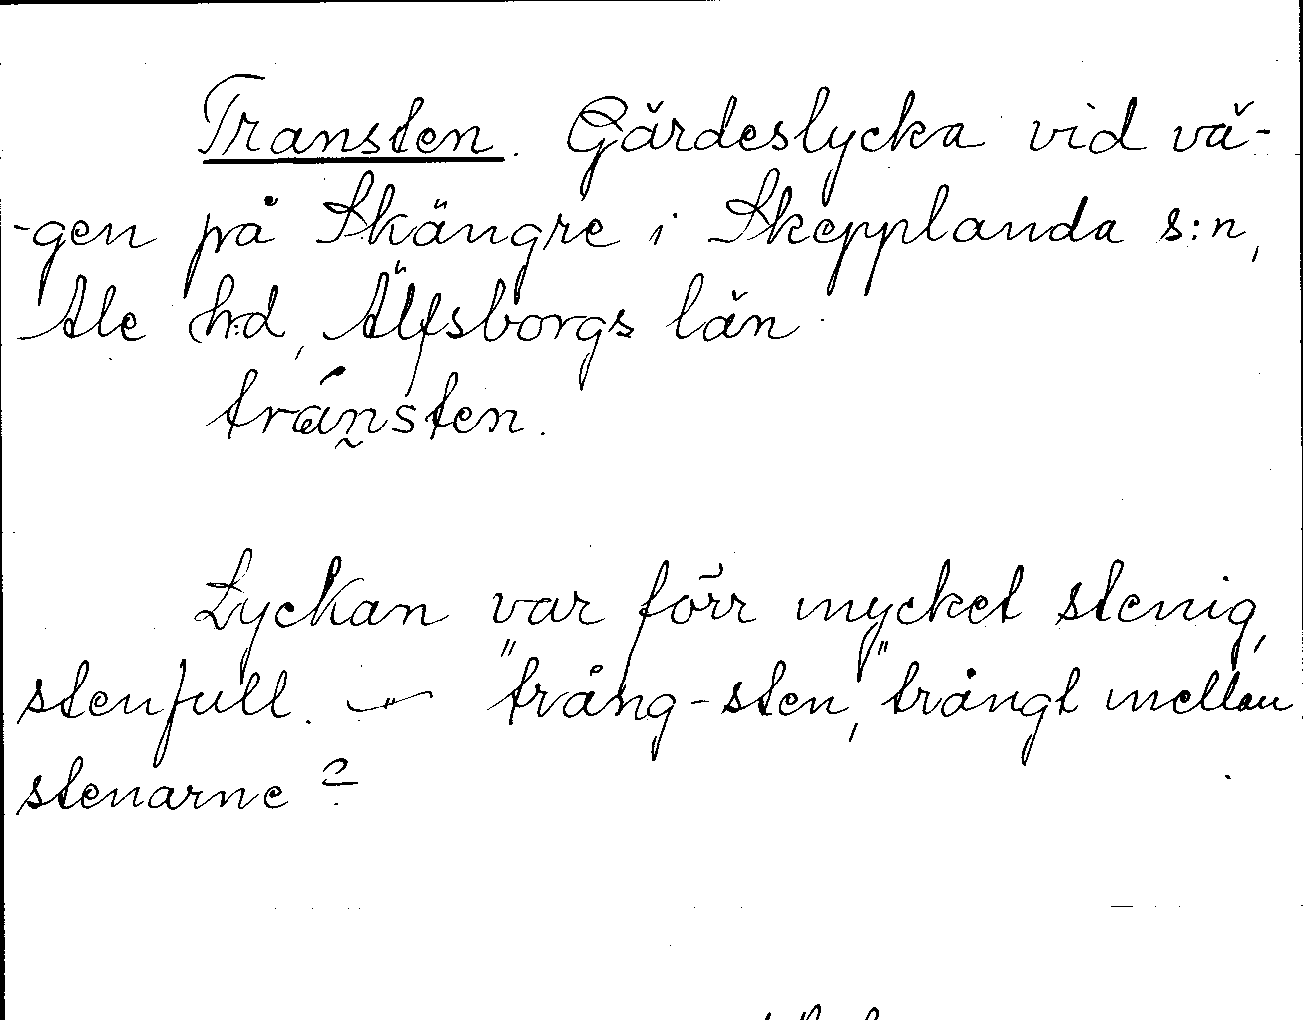 Transten. Gärdeslycka vid vä-
-gen på Skängre i Skepplanda s:n,
Ale h:d, Älfsborgs län.
tránsten.
Lyckan var förr mycket stenig,
stenfull. — "trång-sten," trångt mellan
stenarne?